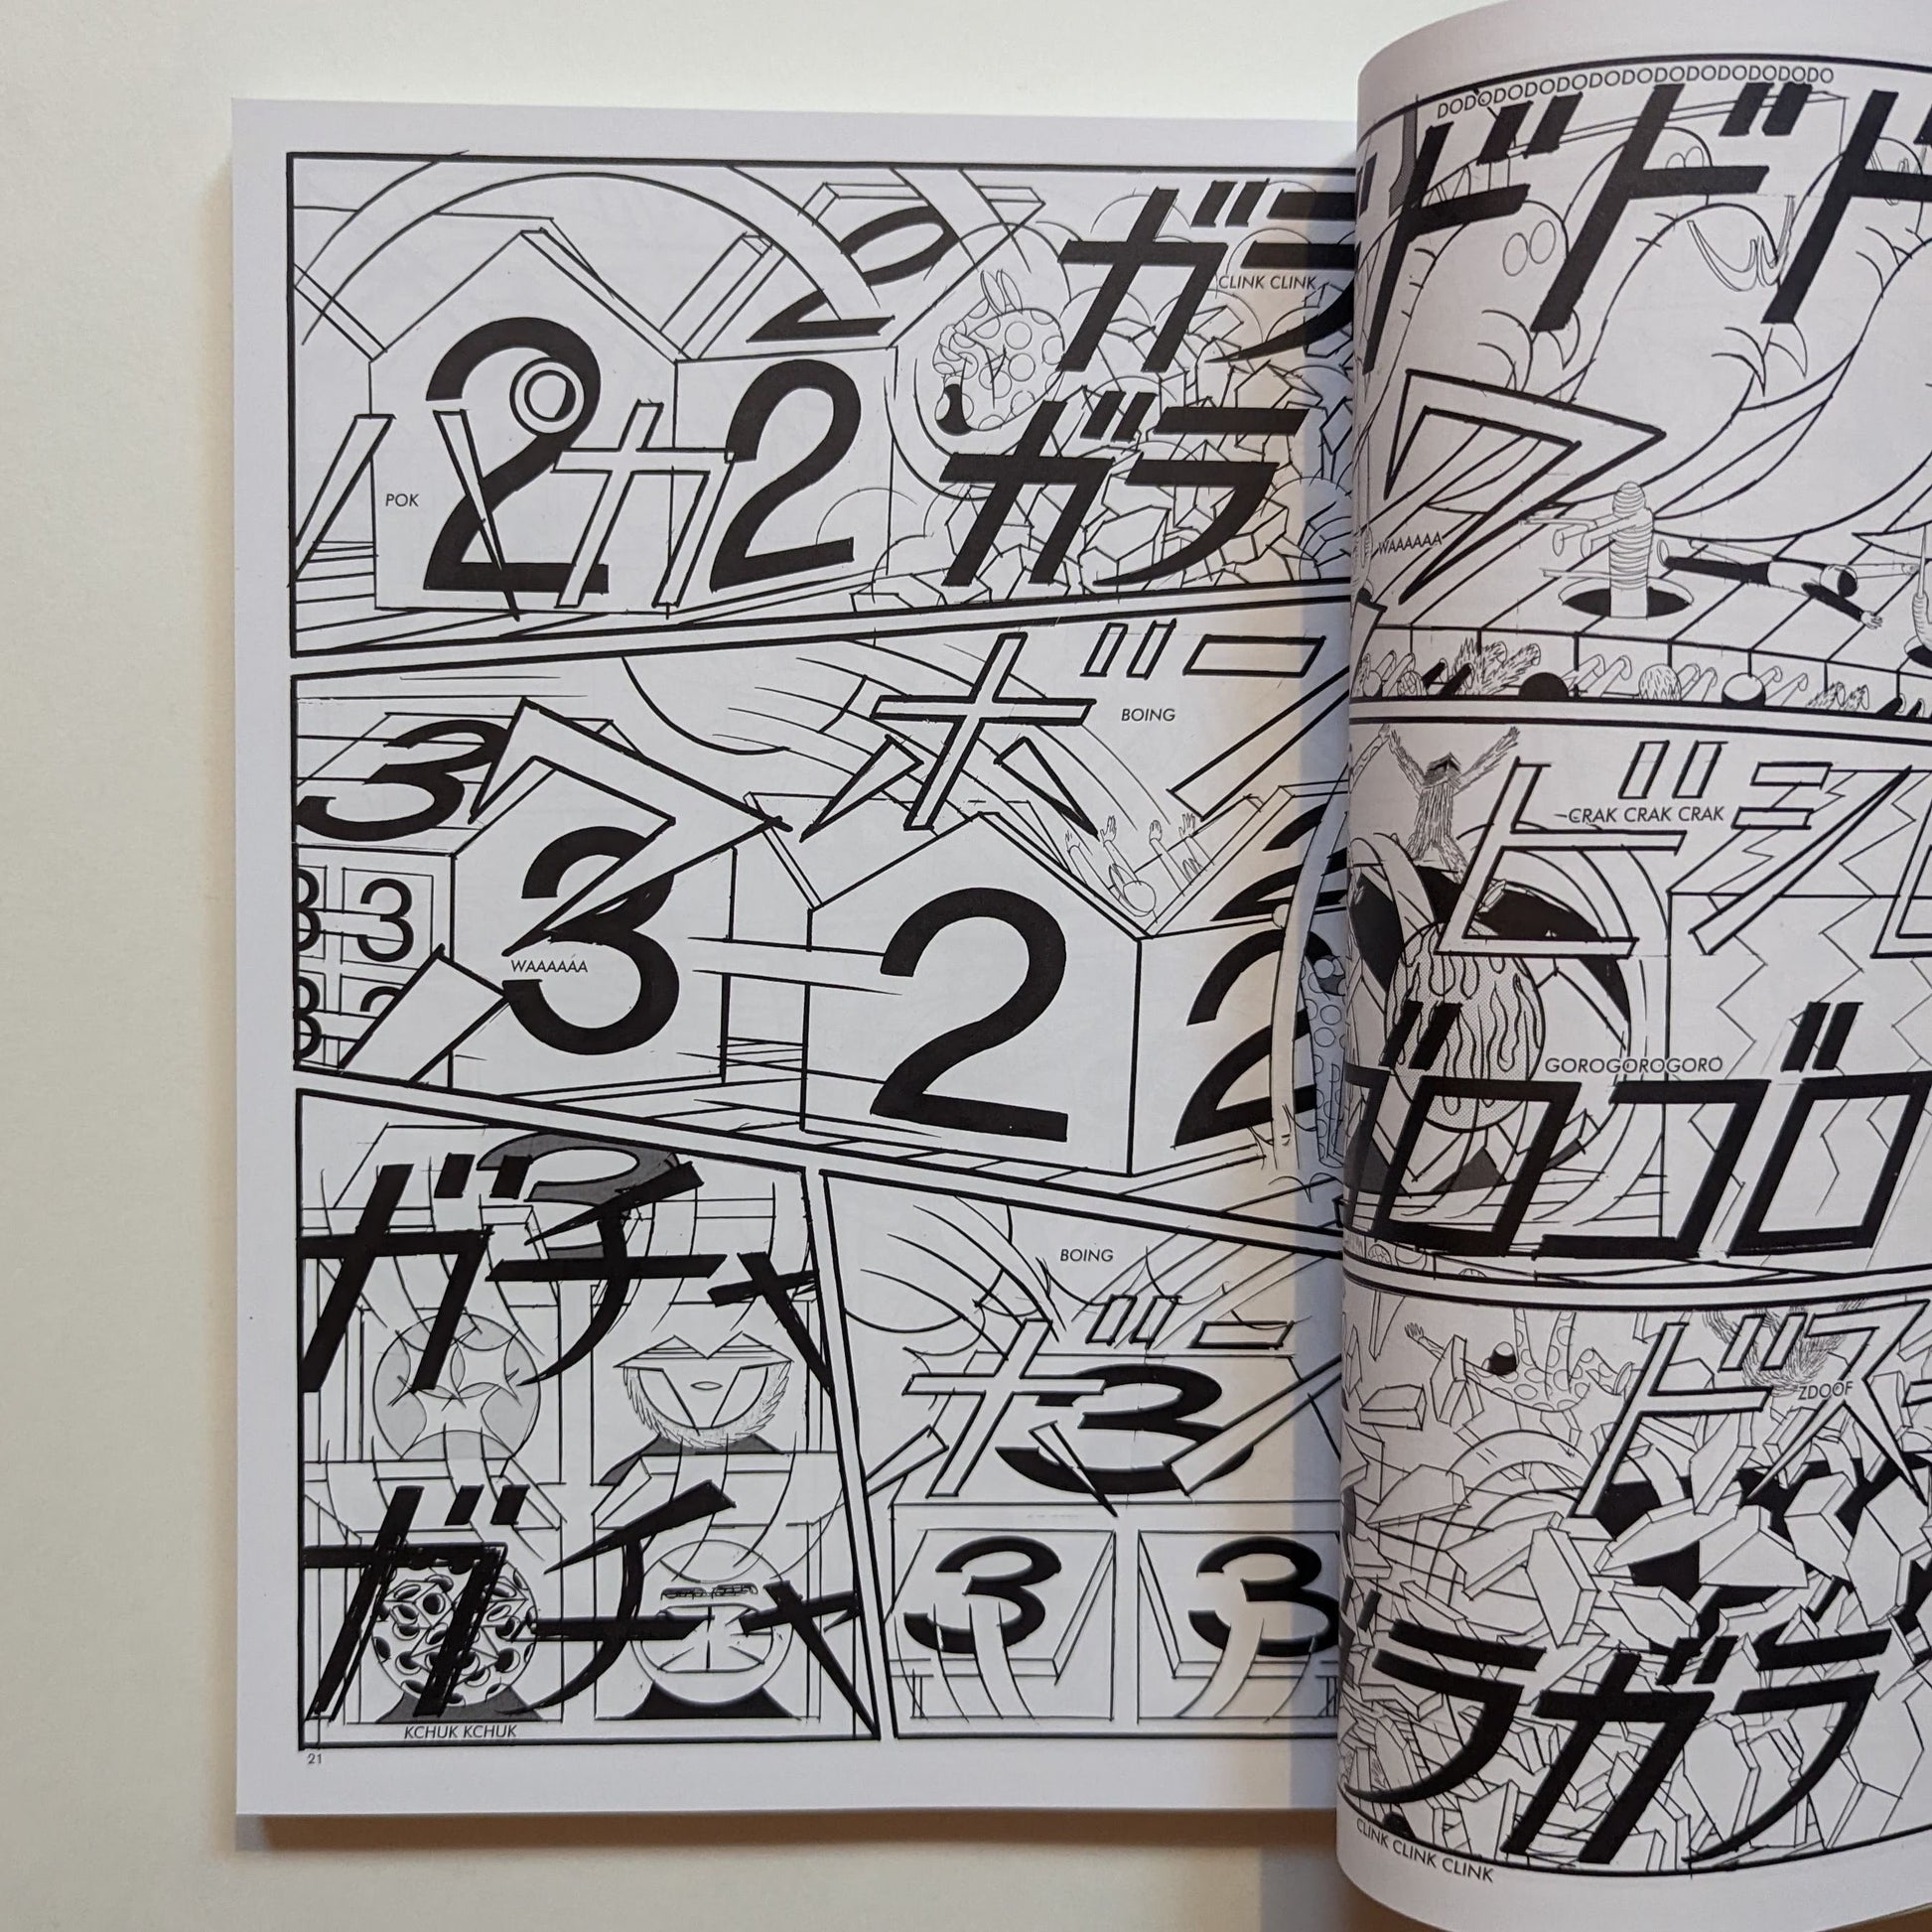 ガラ
CLINK CLINK
ガラ
2
2
2
パカ
POK
ボーン
BOING
3
3
3
3
ワー
WAAAAAA
2
2
2
ガチャ
ガチャ
KCHUK KCHUK
BOING
ボーン
3
3
3
21
DODODODODODODODODODODODO
ドドド
ワ
WAAAAAA
CRAK CRAK CRAK
ビシ
GOROGOROGORO
ゴロゴロ
ドス
ZDOOF
ラガラ
CLINK CLINK CLINK